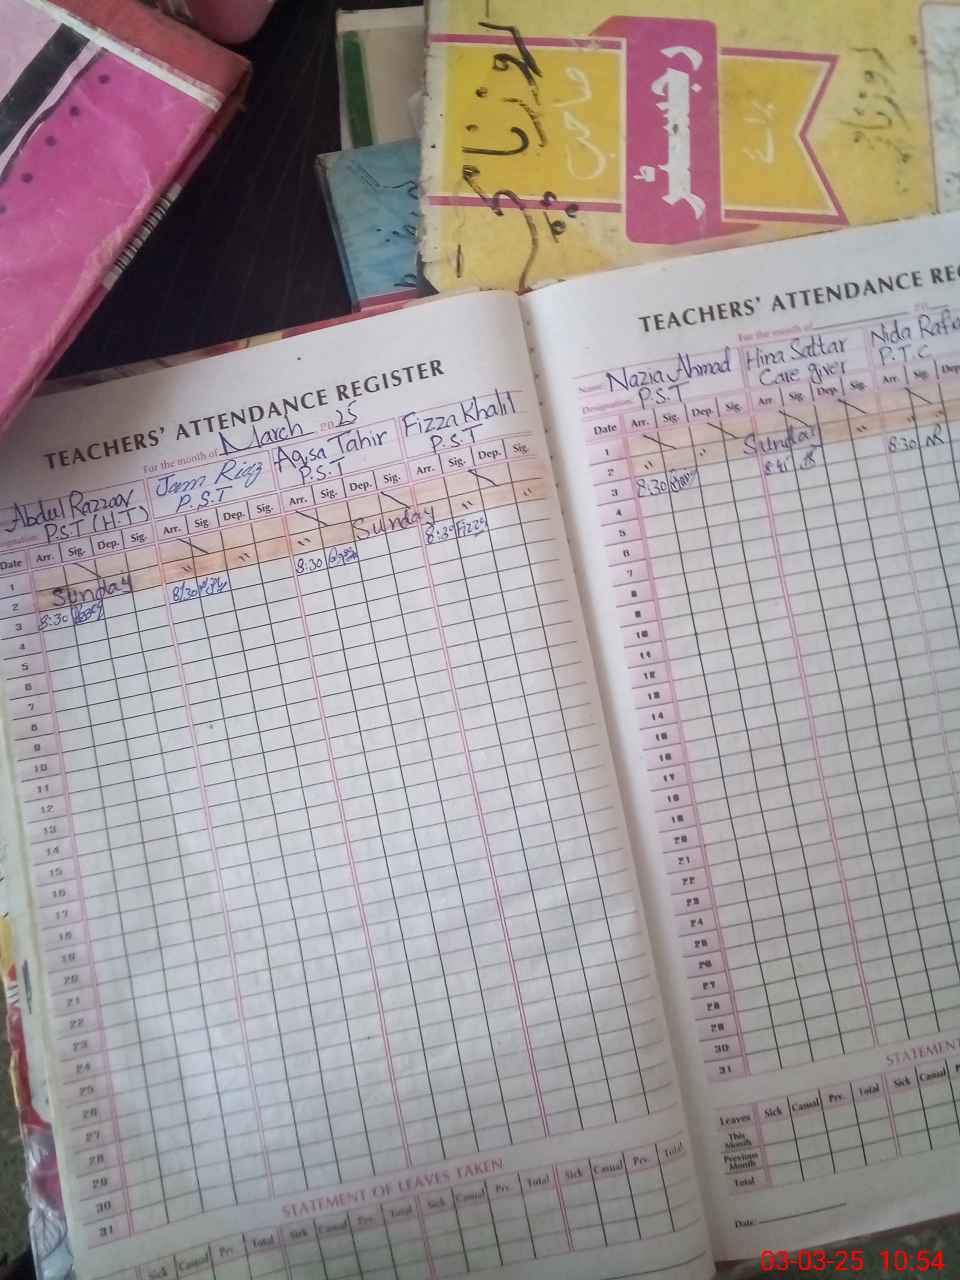 روزنامچہ
صاحب
رجسٹر
برائے
TEACHERS' ATTENDANCE REGISTER
For the month of March 2025
Abdul Razzaq
P.S.T (H.T)
Jam Riaz
P.S.T
Aqsa Tahir
P.S.T
Fizza Khalil
P.S.T
Date Arr. Sig. Dep. Sig. Arr. Sig. Dep. Sig. Arr. Sig. Dep. Sig. Arr. Sig. Dep. Sig.
1
2 Sunday " " " Sunday " "
3 8:30 8:30 8:30 8:30 Fizza
4
5
6
7
8
9
10
11
12
13
14
15
16
17
18
19
20
21
22
23
24
25
26
27
28
29
30
31
STATEMENT OF LEAVES TAKEN
Sick Casual Prv. Total Sick Casual Prv. Total Sick Casual Prv. Total Sick Casual Prv. Total
TEACHERS' ATTENDANCE REG
For the month of 20
Name Nazia Ahmad Hina Sattar Nida Rafiq
Designation P.S.T Care giver P.T.C
Date Arr. Sig. Dep. Sig. Arr. Sig. Dep. Sig. Arr. Sig. Dep.
1
2 " " Sunday " " "
3 8:30 8:41 8:30
4
5
6
7
8
9
10
11
12
13
14
15
16
17
18
19
20
21
22
23
24
25
26
27
28
29
30
31
STATEMENT
Leaves Sick Casual Prv. Total Sick Casual
This Month
Previous Month
Total
Date:
03-03-25 10:54